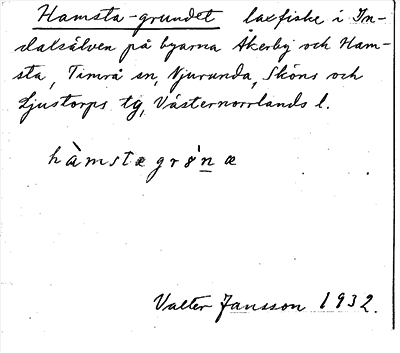 Hamsta-grundet laxfiske i In-
dalsälven på byarna Åkerby och Ham-
sta, Timrå sn, Njurunda, Sköns och
Ljustorps tg, Västernorrlands l.
hàmstægrǿnæ
Valter Jansson 1932.